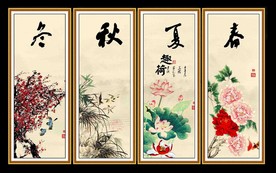 春
夏
趣荷
秋
冬